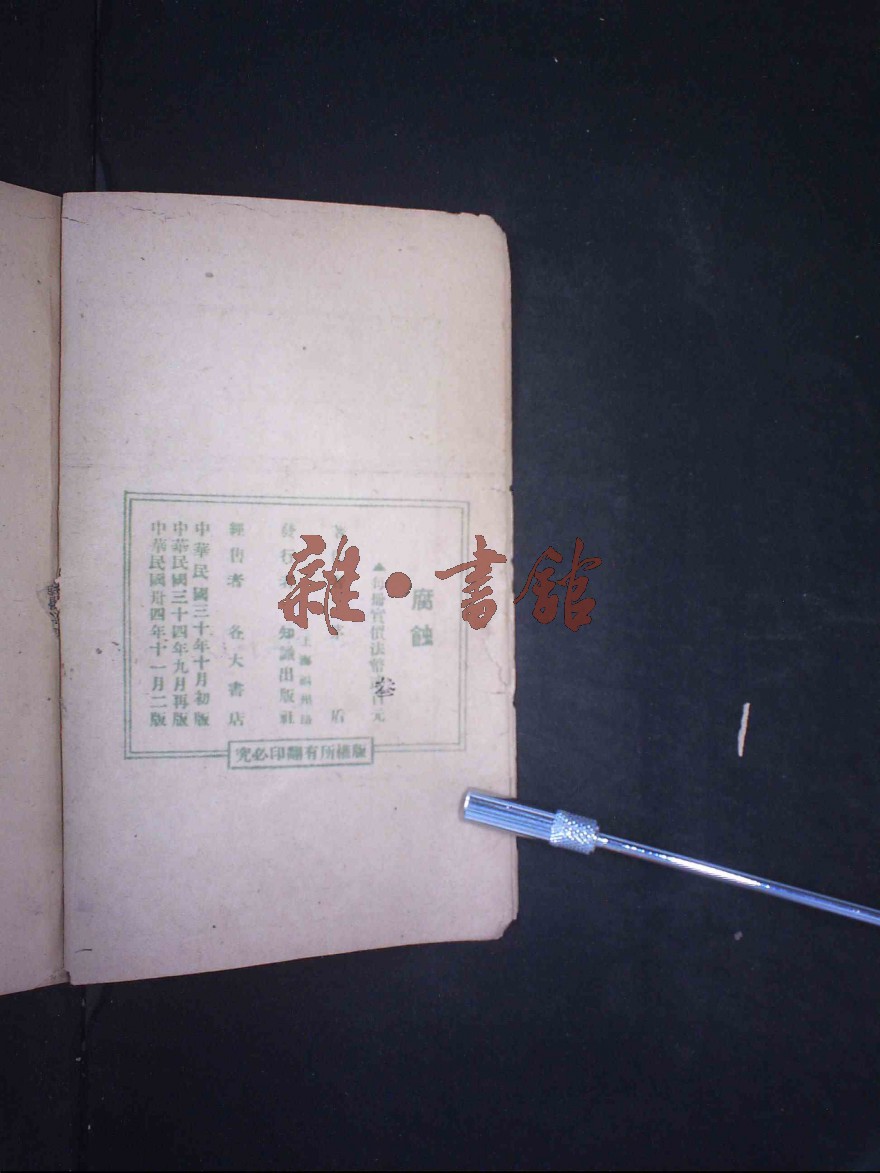 腐蝕
▲每冊實價法幣叁百元
盾
上海
發行者 知識出版社
經售者 各大書店
中華民國三十年十月初版
中華民國三十四年九月再版
中華民國卅四年十一月二版
版權所有翻印必究
雜·書館